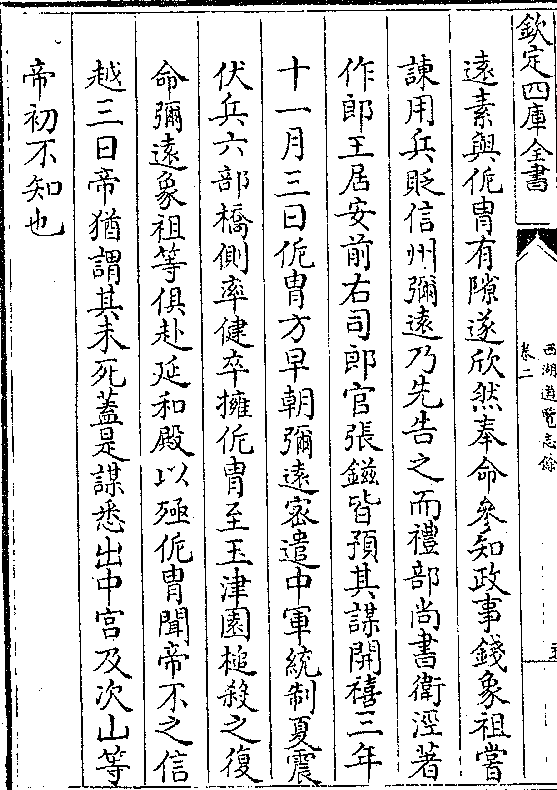 欽定四庫全書
西湖遊覽志餘
卷二
遠素與侂胄有隙遂欣然奉命參知政事錢象祖嘗
諫用兵貶信州彌遠乃先告之而禮部尚書衛涇著
作郎王居安前右司郎官張鎡皆預其謀開禧三年
十一月三日侂胄方早朝彌遠密遣中軍統制夏震
伏兵六部橋側率健卒擁侂胄至玉津園槌殺之復
命彌遠象祖等俱赴延和殿以殛侂胄聞帝不之信
越三日帝猶謂其未死蓋是謀悉出中宮及次山等
帝初不知也